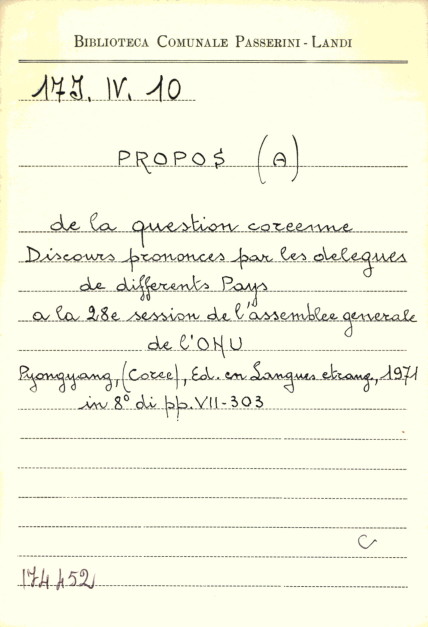 BIBLIOTECA COMUNALE PASSERINI-LANDI
17J. IV. 10
PROPOS (A)
de la question coreenne
Discours prononces par les delegues
de differents Pays
a la 28e session de l'assemblee generale
de l'ONU
Pyongyang, (Coree), Ed. en Langues etrang., 1971
in 8° di pp. VII-303
C
174452